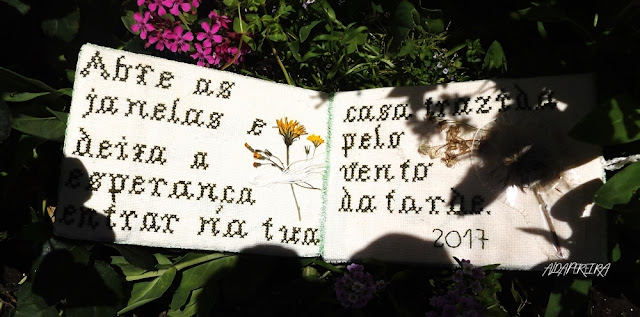 Abre as
janelas e
deixa a
esperança
entrar na tua
casa trazida
pelo
vento
da tarde.
2017
ALDAPEREIRA